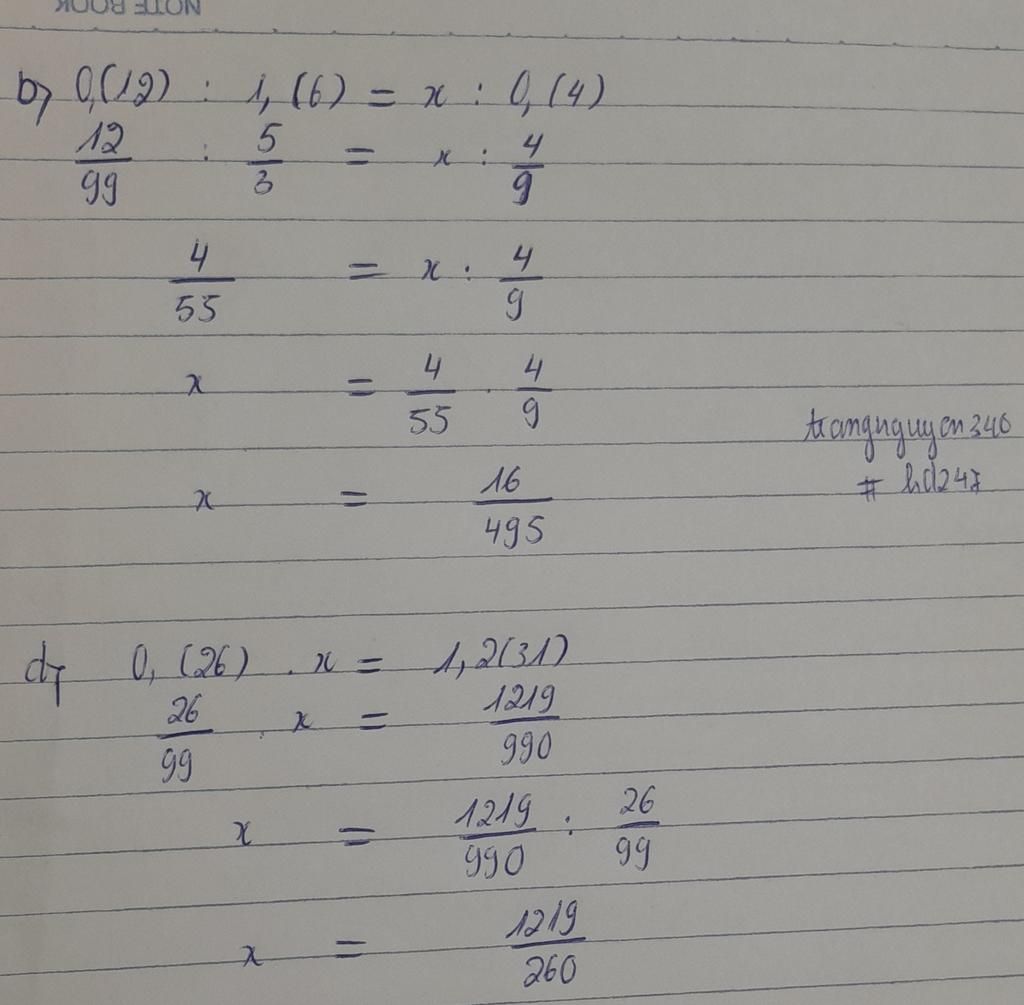 NOTE BOOK
b) 0,(12) : 1,(6) = x : 0,(4)
12/99 : 5/3 = x : 4/9
4/55 = x : 4/9
x = 4/55 . 4/9
trangnguyen346
# hd247
x = 16/495
d) 0,(26) . x = 1,2(31)
26/99 . x = 1219/990
x = 1219/990 : 26/99
x = 1219/260